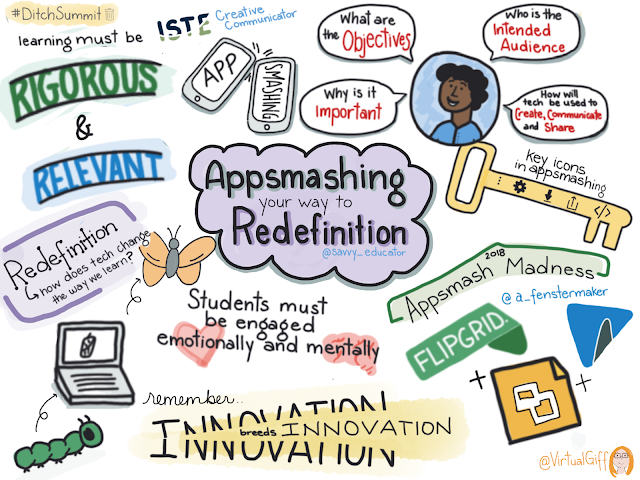 #DitchSummit
learning must be
RIGOROUS
&
RELEVANT
ISTE Creative
Communicator
APP
SMASHING
What are
the Objectives
Who is the
Intended
Audience
Why is it
Important
How will
tech be used to
Create, Communicate
and Share
Appsmashing
your way to
Redefinition
@savvy_educator
key icons
in appsmashing
</>
Redefinition
how does tech change
the way we learn?
Students must
be engaged
emotionally and mentally
2018
Appsmash Madness
@a_fenstermaker
FLIPGRID.
+
+
remember..
INNOVATION
breeds INNOVATION
INNOVATION
@VirtualGiff